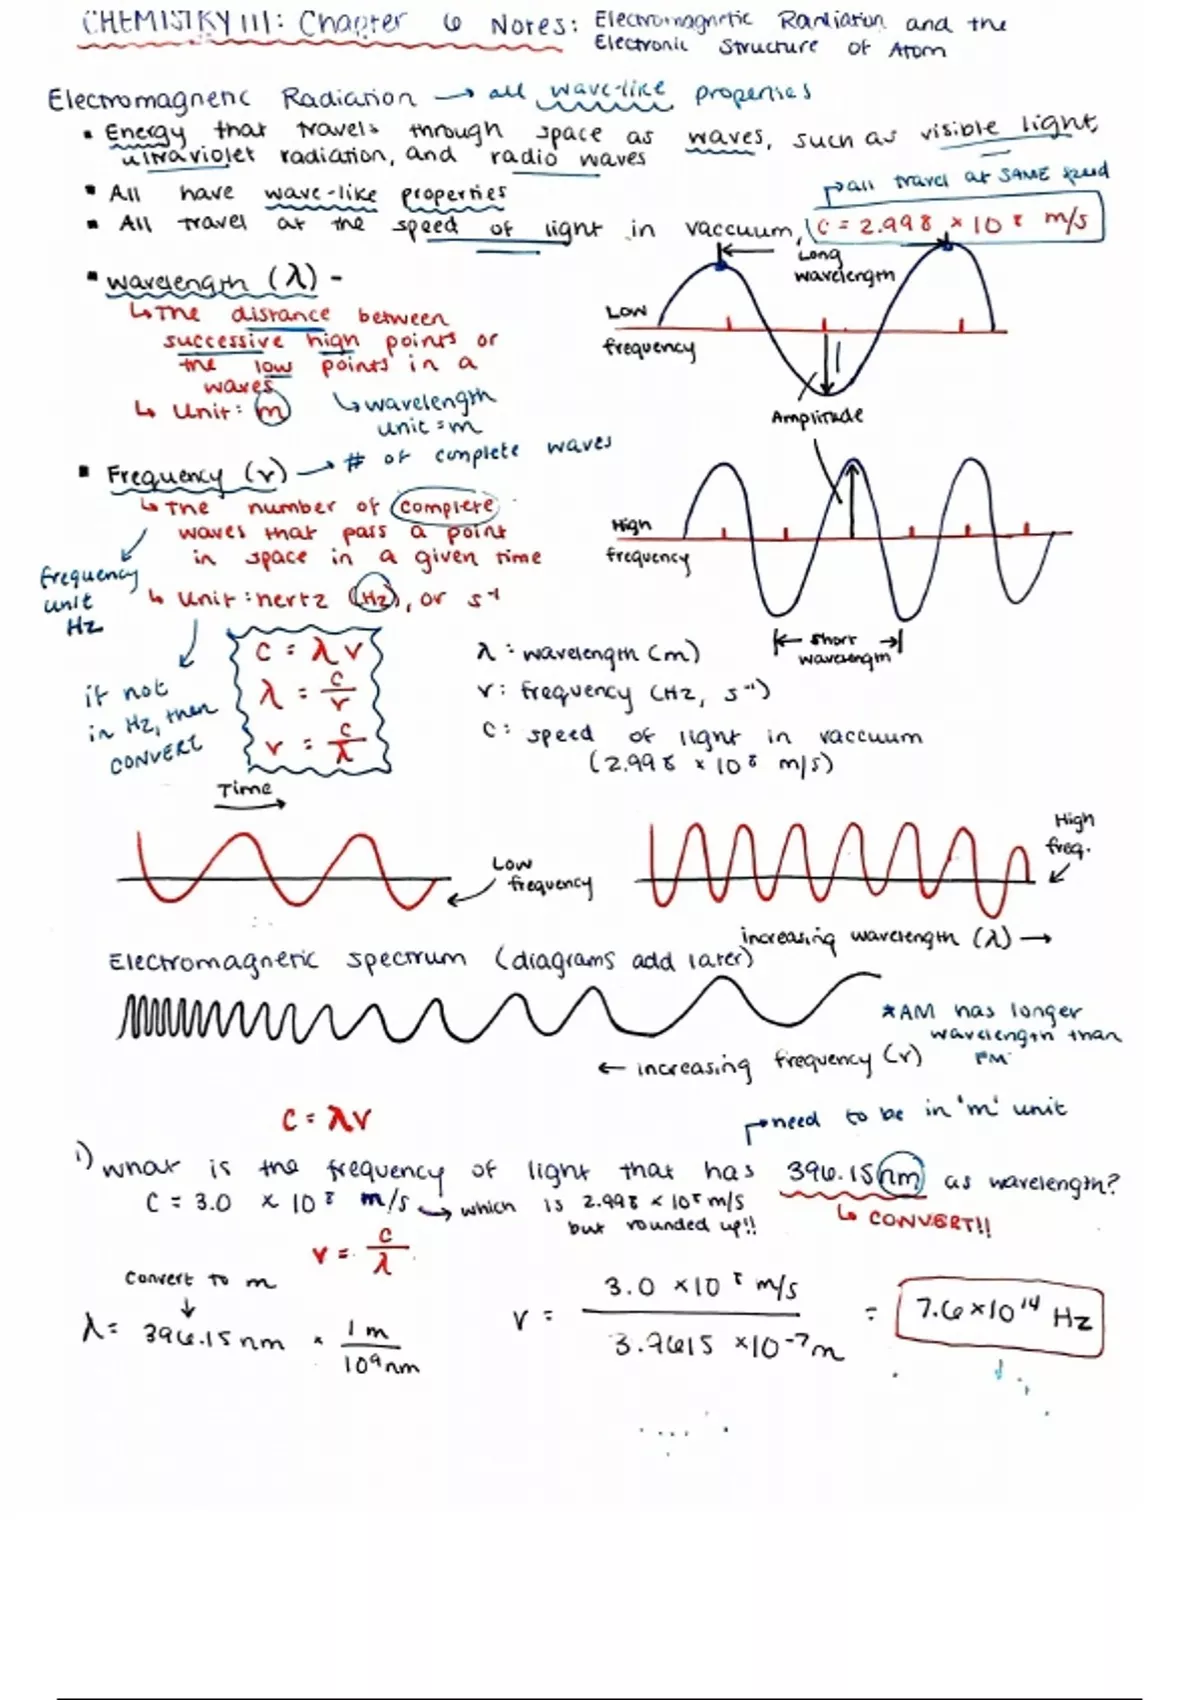 CHEMISTRY 111: Chapter 6 Notes: Electromagnetic Radiation and the
Electronic Structure of Atom
Electromagnetic Radiation → all wave-like properties
▪ Energy that travels through space as waves, such as visible light,
ultraviolet radiation, and radio waves
▪ All have wave-like properties
→ all travel at SAME speed
▪ All travel at the speed of light in vaccuum, C = 2.998 × 10⁸ m/s
▪ wavelength (λ) -
↳ The distance between
successive high points or
the low points in a
waves
↳ Unit: m
↳ wavelength
unit = m
Long
wavelength
Low
frequency
Amplitude
▪ Frequency (ν) → # of complete waves
↳ The number of complete
waves that pass a point
in space in a given time
↳ Unit: hertz (Hz), or s⁻¹
frequency
unit
Hz
if not
in Hz, then
CONVERT
High
frequency
short
wavelength
C = λν
λ = c/ν
ν = c/λ
λ: wavelength (m)
ν: frequency (Hz, s⁻¹)
C: speed of light in vaccuum
(2.998 × 10⁸ m/s)
Time
Low
frequency
High
freq.
increasing wavelength (λ) →
Electromagnetic spectrum (diagrams add later)
*AM has longer
wavelength than
FM
← increasing frequency (ν)
C = λν
→ need to be in 'm' unit
1) what is the frequency of light that has 396.15 nm as wavelength?
C = 3.0 × 10⁸ m/s → which is 2.998 × 10⁸ m/s
but rounded up!!
↳ CONVERT!!
ν = c/λ
convert to m
λ = 396.15 nm × 1 m/10⁹ nm
ν = 3.0 × 10⁸ m/s / 3.9615 × 10⁻⁷ m = 7.6 × 10¹⁴ Hz